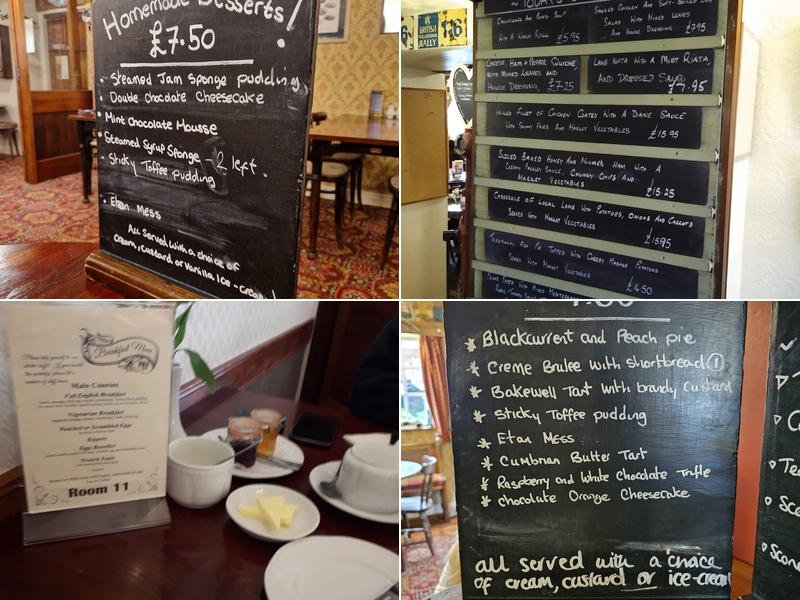 Homemade Desserts!
£7.50
• Steamed Jam Sponge pudding
• Double Chocolate Cheesecake
• Mint Chocolate Mousse
• Steamed Syrup Sponge - 2 left.
• Sticky Toffee pudding
• Eton Mess
All Served with a choice of
cream, custard, or Vanilla Ice-cream!
BRITISH
RALLY
With a Warm
£5.95
Salad with Mixed Leaves
and House Dressing £7.95
Cheese, Ham & Pepper Quiche
with Mixed Leaves and
House Dressing, £7.25
Lamb Kofta with a Mint Riata,
and Dressed Salad
£7.95
Grilled Fillet of Chicken Coated with a Diane Sauce
with Skinny Fries and Market Vegetables £15.95
Sliced Baked Honey and Mustard Ham with a
Creamy Parsley Sauce, Chunky Chips and
Market Vegetables £15.25
Casserole of Local Lamb with Potatoes, Onions and Carrots
Served with Market Vegetables £15.95
Traditional Fish Pie Topped with Cheesy Mashed Potatoes
Served with Market Vegetables £16.50
Breakfast Menu
Main Courses
Full English Breakfast
Vegetarian Breakfast
Poached or Scrambled Eggs
Kippers
Eggs Benedict
French Toast
Room 11
* Blackcurrent and Peach pie
* Creme Brulee with shortbread ①
* Bakewell Tart with brandy custard
* Sticky Toffee pudding
* Eton Mess
* Cumbrian Butter Tart
* Raspberry and White Chocolate Trifle
* Chocolate Orange Cheesecake
all served with a choice
of cream, custard or ice-cream